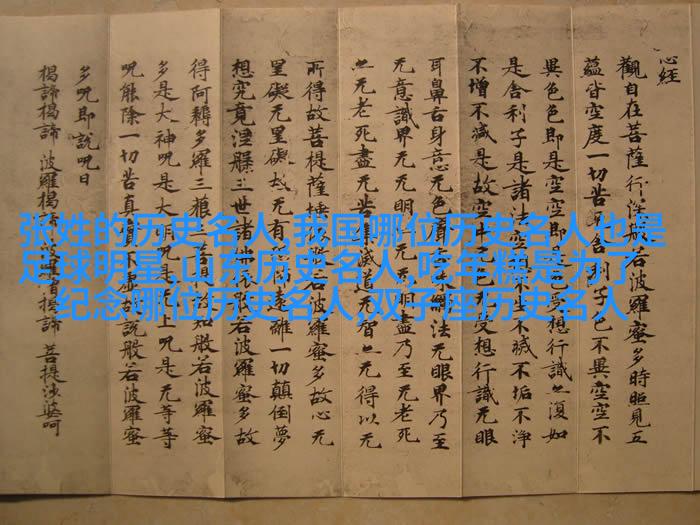 张姓的历史名人,我国哪位历史名人也是
足球明星,山东历史名人,吃年糕是为了
纪念哪位历史名人,双子座历史名人
心经
觀自在菩薩行深般若波羅蜜多時照見五
蘊皆空度一切苦厄舍利子色不異空空不
異色色即是空空即是色受想行識亦復如
是舍利子是諸法空不不滅不垢不淨
不增不減是故空中色无受想行識无眼
耳鼻舌身意无色聲觸法无眼界乃至
无意識界无无明无明盡乃至无老死
亦无老死盡无苦滅道无智亦无得以无
所得故菩提薩埵般若波羅蜜多故心无
罣礙无罣礙故无有遠離一切顛倒夢
想究竟涅槃三世諸依般若波羅蜜多故
得阿耨多羅三藐三菩提故知般若波羅蜜
多是大神咒是大咒是上咒是无等等
咒能除一切苦真實不虛故說般若波羅蜜
多咒即說咒曰
揭諦揭諦 波羅揭 揭諦 菩提婆呵